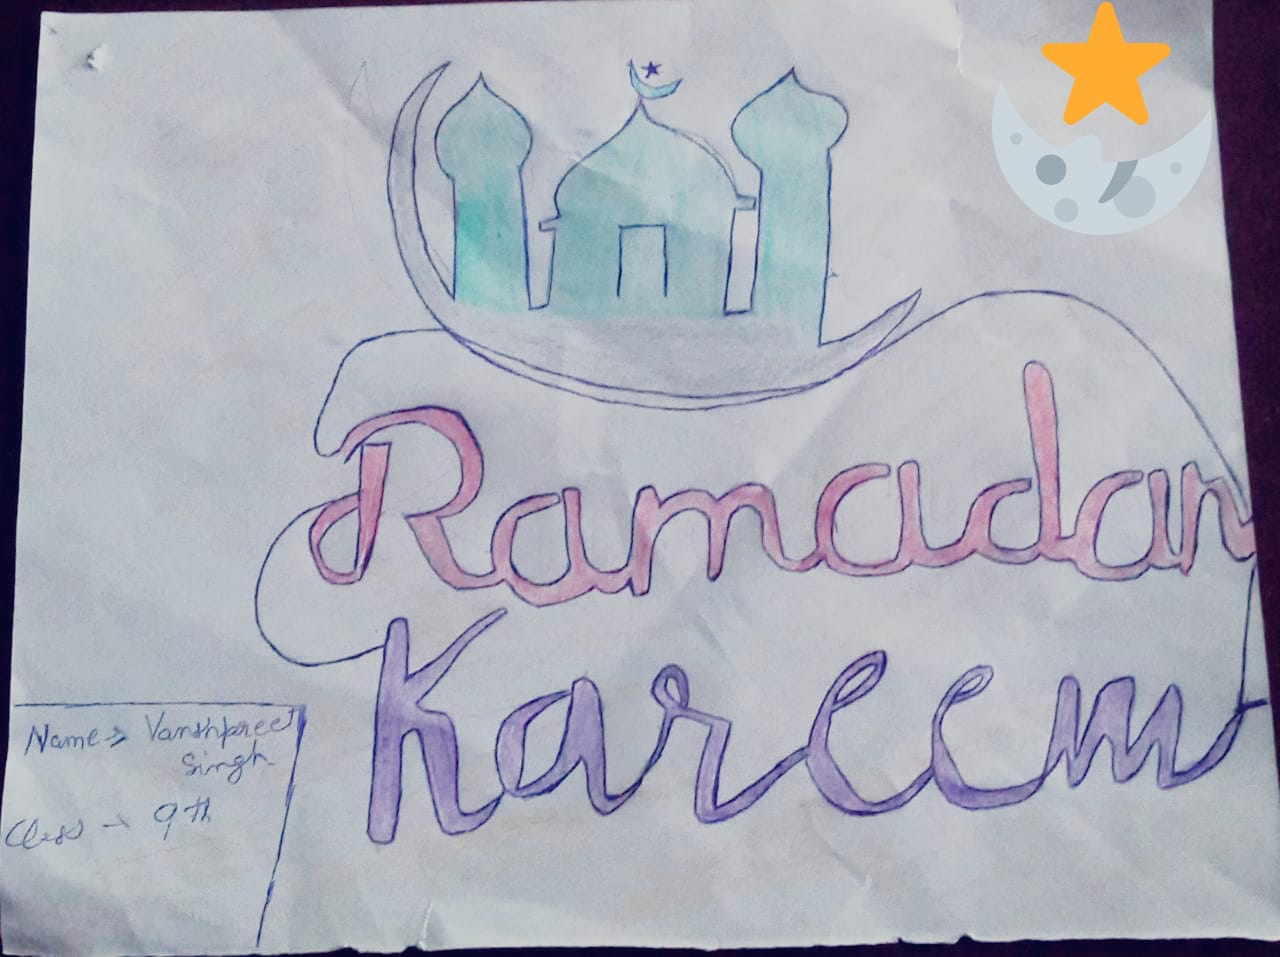 Ramadan
Kareem
Name → Vanshpreet
Singh
Class → 9th